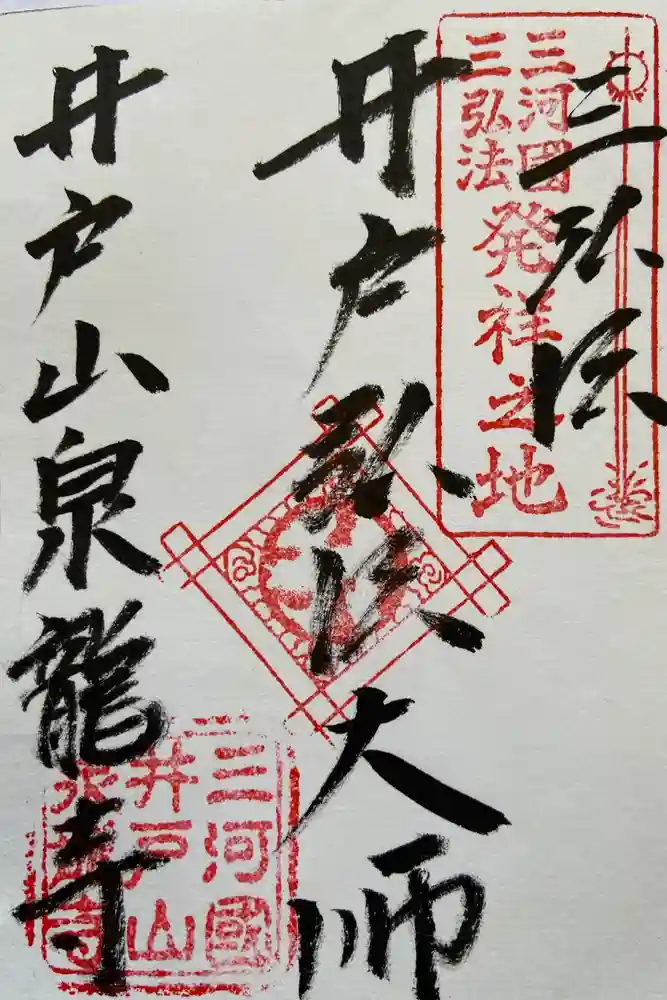 三弘法
三河國
三弘法
発祥之地
井戸弘法大師
井戸山泉龍寺
三河國
井戸山
泉龍寺